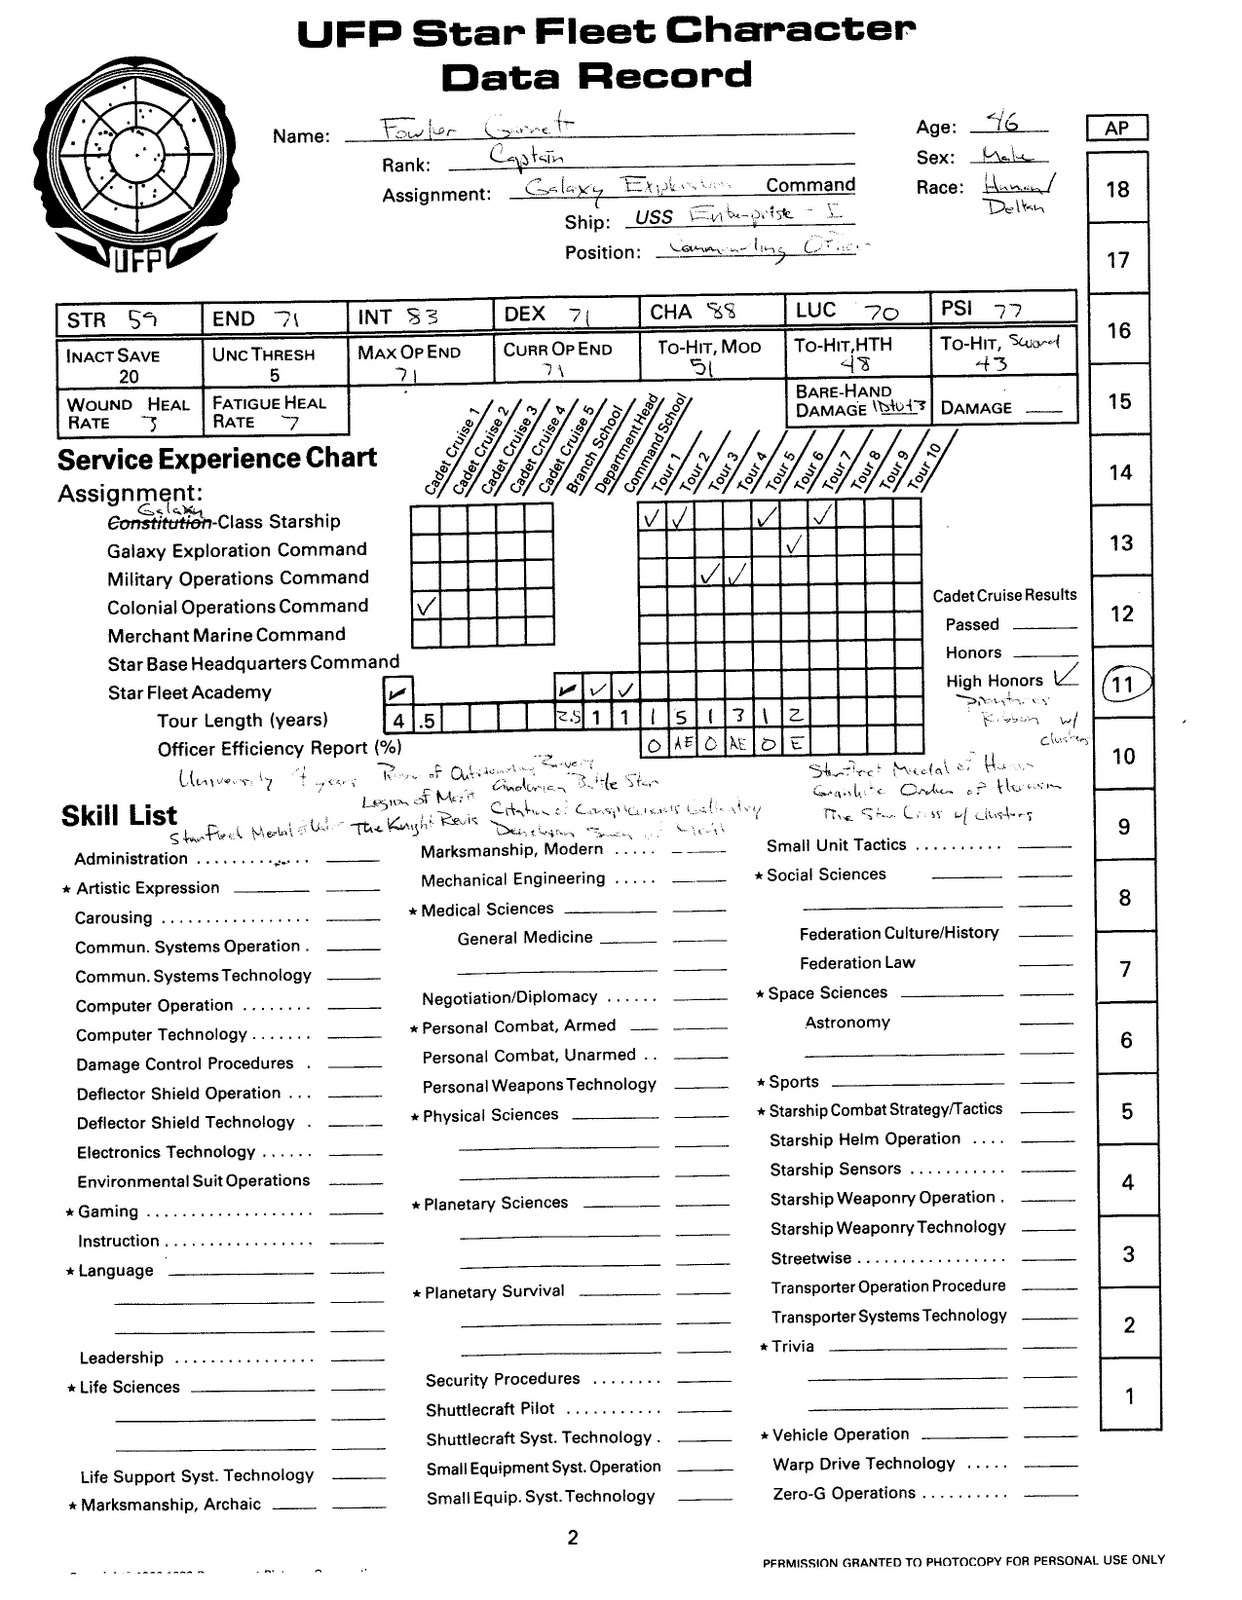 UFP Star Fleet Character
Data Record
UFP
Name: Fowler Garrett
Rank: Captain
Assignment: Galaxy Exploration Command
Ship: USS Enterprise - I
Position: Commanding Officer
Age: 46
Sex: Male
Race: Human/
Deltan
AP
18
17
16
15
14
13
12
11
10
9
8
7
6
5
4
3
2
1
STR 59 END 71 INT 83 DEX 71 CHA 88 LUC 70 PSI 77
INACT SAVE 20
UNC THRESH 5
MAX OP END 71
CURR OP END 71
TO-HIT, MOD 51
TO-HIT, HTH 48
TO-HIT, Sword 43
WOUND HEAL RATE 3
FATIGUE HEAL RATE 7
BARE-HAND DAMAGE 1D10+3
DAMAGE
Service Experience Chart
Cadet Cruise 1
Cadet Cruise 2
Cadet Cruise 3
Cadet Cruise 4
Cadet Cruise 5
Branch School
Department Head
Command School
Tour 1
Tour 2
Tour 3
Tour 4
Tour 5
Tour 6
Tour 7
Tour 8
Tour 9
Tour 10
Assignment:
Galaxy
Constitution-Class Starship
Galaxy Exploration Command
Military Operations Command
Colonial Operations Command
Merchant Marine Command
Star Base Headquarters Command
Star Fleet Academy
Tour Length (years) 4 .5 2.5 1 1 1 5 1 3 1 2
Officer Efficiency Report (%) O AE O AE O E
Cadet Cruise Results
Passed
Honors
High Honors
Ribbon w/
clusters
University 4 years
of Outstanding Bravery
Legion of Merit
Andorian Battle Star
Citation of Conspicuous Gallantry
StarFleet Medal of Honor
Order of Heroism
The Star Cross w/ clusters
StarFleet Medal of Valor
The Knight
Skill List
Administration
★ Artistic Expression
Carousing
Commun. Systems Operation
Commun. Systems Technology
Computer Operation
Computer Technology
Damage Control Procedures
Deflector Shield Operation
Deflector Shield Technology
Electronics Technology
Environmental Suit Operations
★ Gaming
Instruction
★ Language
Leadership
★ Life Sciences
Life Support Syst. Technology
★ Marksmanship, Archaic
Marksmanship, Modern
Mechanical Engineering
★ Medical Sciences
General Medicine
Negotiation/Diplomacy
★ Personal Combat, Armed
Personal Combat, Unarmed
Personal Weapons Technology
★ Physical Sciences
★ Planetary Sciences
★ Planetary Survival
Security Procedures
Shuttlecraft Pilot
Shuttlecraft Syst. Technology
Small Equipment Syst. Operation
Small Equip. Syst. Technology
Small Unit Tactics
★ Social Sciences
Federation Culture/History
Federation Law
★ Space Sciences
Astronomy
★ Sports
★ Starship Combat Strategy/Tactics
Starship Helm Operation
Starship Sensors
Starship Weaponry Operation
Starship Weaponry Technology
Streetwise
Transporter Operation Procedure
Transporter Systems Technology
★ Trivia
★ Vehicle Operation
Warp Drive Technology
Zero-G Operations
2
PERMISSION GRANTED TO PHOTOCOPY FOR PERSONAL USE ONLY